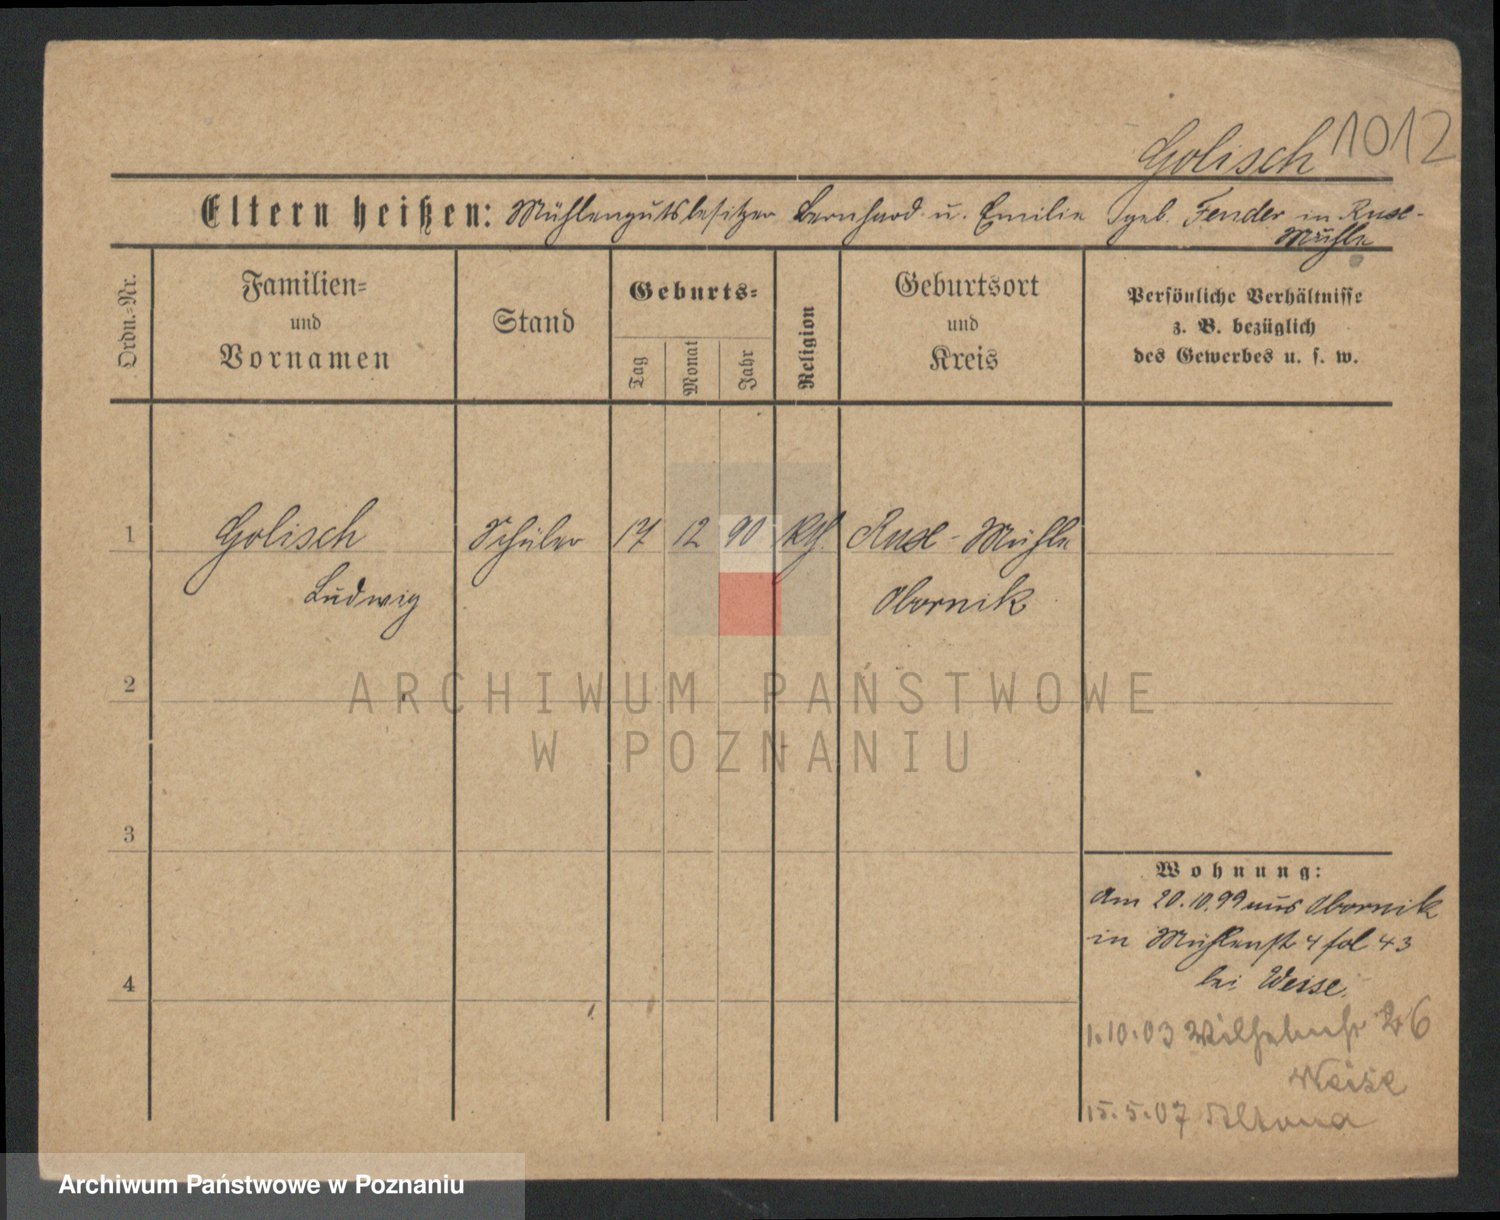 Golisch 1012
Eltern heißen: Mühlengutsbesitzer Bernhard u. Emilie geb. Fender in Ruxe-
Mühle
Ordn.-Nr.
Familien-
und
Vornamen
Stand
Geburts-
Tag
Monat
Jahr
Religion
Geburtsort
und
Kreis
Persönliche Verhältnisse
z. B. bezüglich
des Gewerbes u. s. w.
1 Golisch Schüler 17 12 90 kth. Mühle
Ludwig Obornik
2
3
4
Wohnung:
Am 20.10.99 aus Obornik
in Mühlenstr 4 fol 43
bei Weise.
1.10.03 Wilhelmstr 26
Weise
15.5.07 Altona
ARCHIWUM PAŃSTWOWE
W POZNANIU
Archiwum Państwowe w Poznaniu